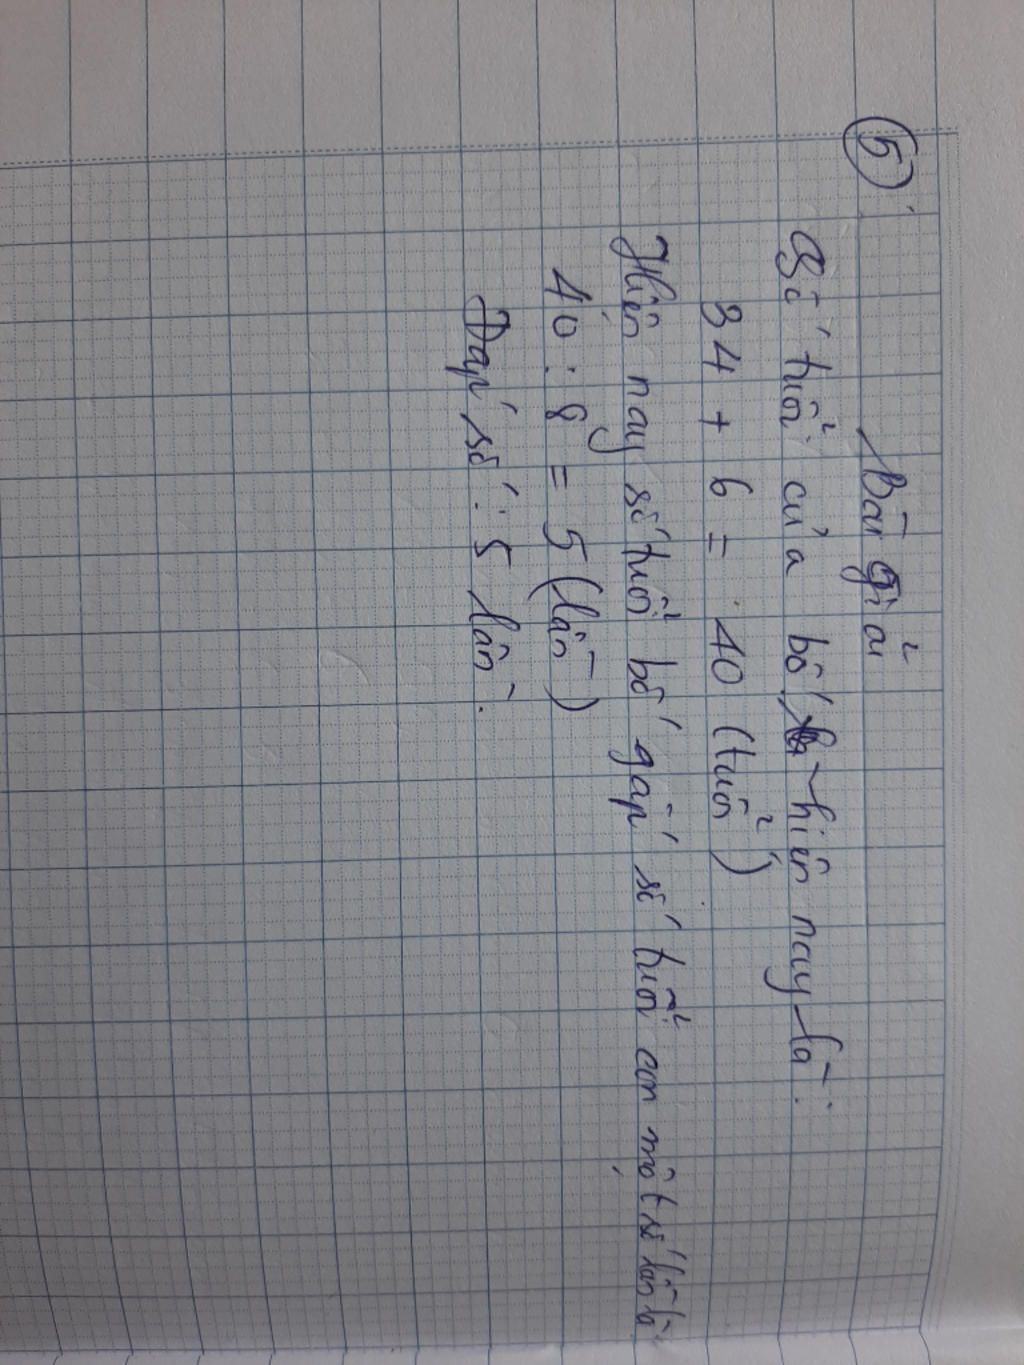 5
Bài giải
Số tuổi của bố hiện nay là:
34 + 6 = 40 (tuổi)
Hiện nay số tuổi bố gấp số tuổi con một số lần là:
40 : 8 = 5 (lần)
Đáp số: 5 lần.